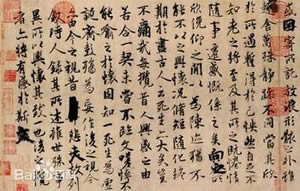 或因寄所託放浪形骸之外雖
趣舍萬殊靜躁不同當其欣
於所遇暫得於己快然自足不
知老之將至及其所之既惓情
隨事遷感慨係之矣向之所
欣俛仰之閒以為陳迹猶不
能不以之興懷況脩短隨化終
期於盡古人云死生亦大矣豈
不痛哉每攬昔人興感之由
若合一契未嘗不臨文嗟悼不
能喻之於懷固知一死生為虛
誕齊彭殤為妄作後之視今
亦由今之視昔悲夫故列
敘時人錄其所述雖世殊事
異所以興懷其致一也後之攬
者亦將有感於斯
Bai百科